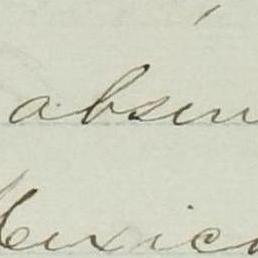 absen
Mexico